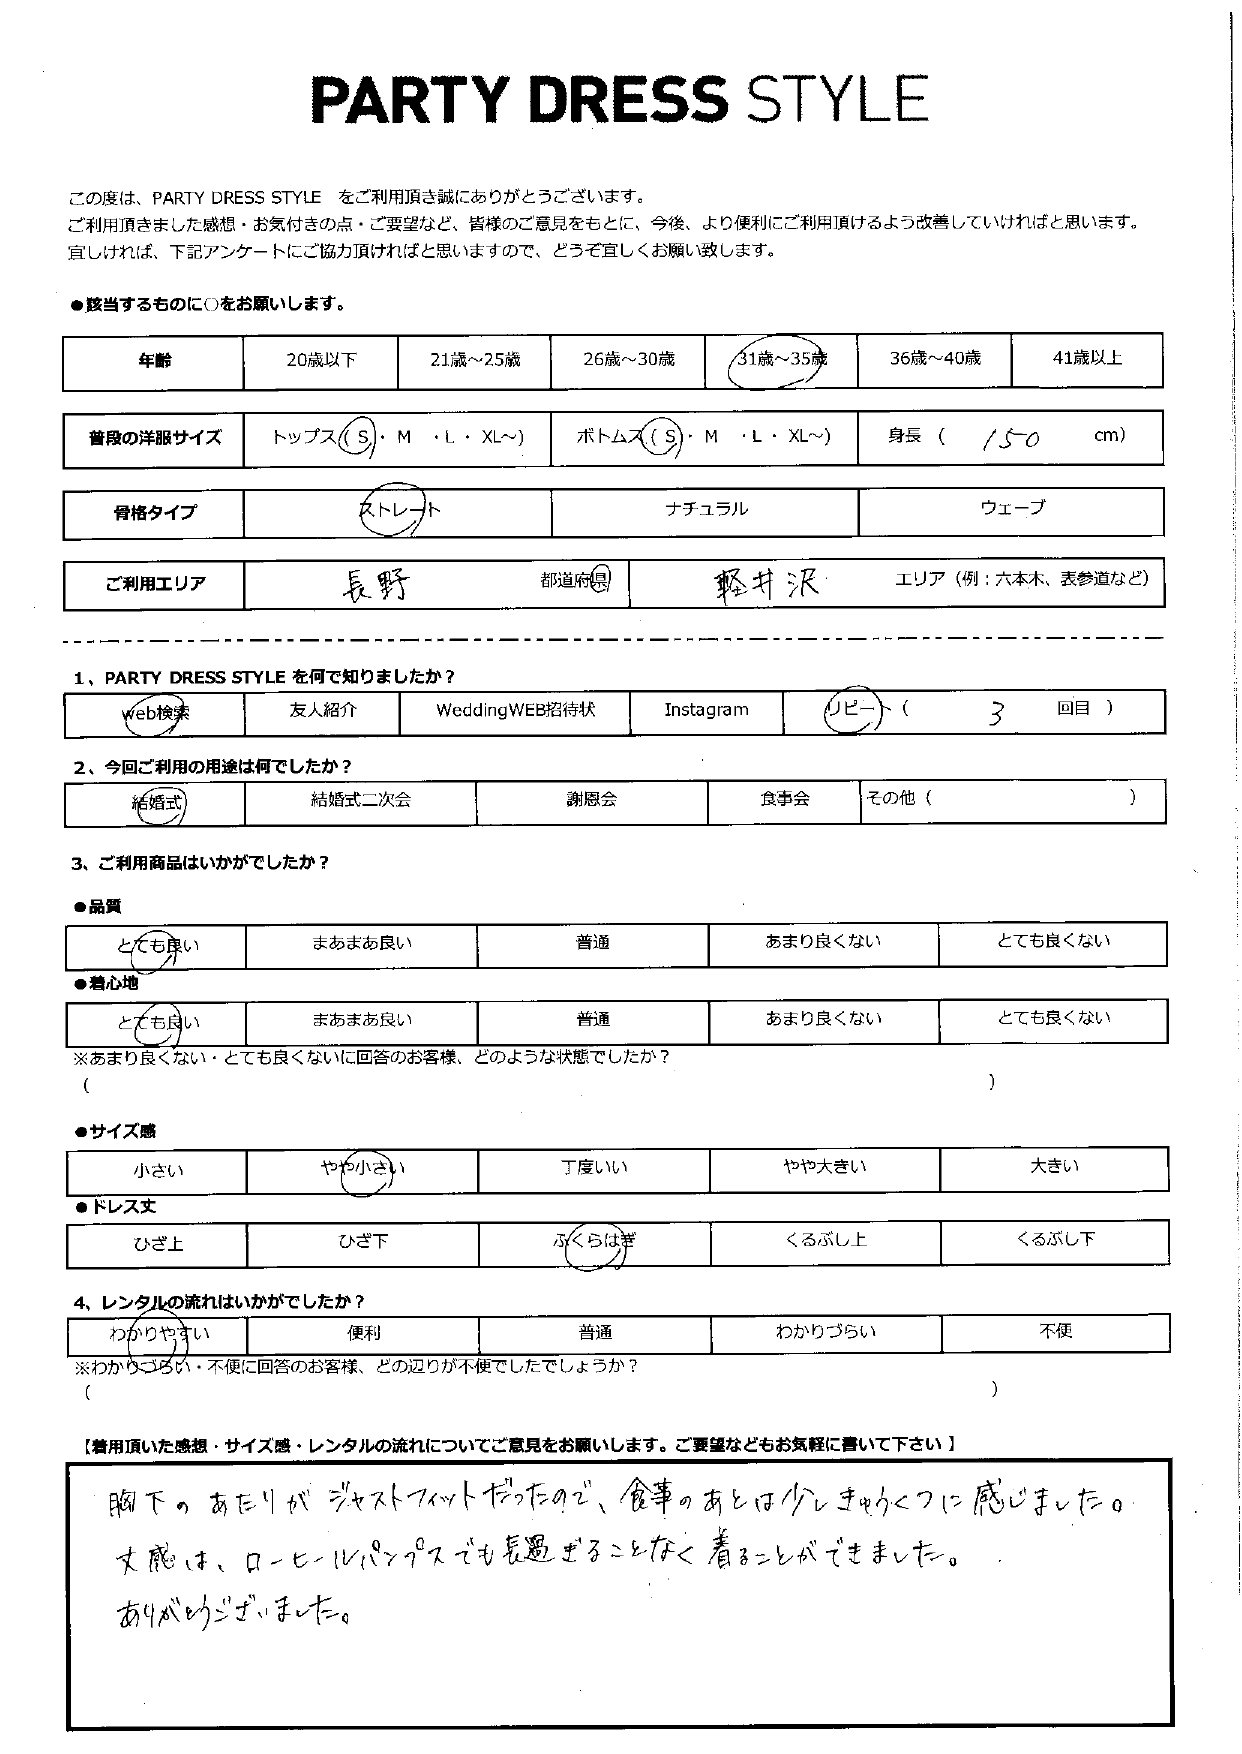 PARTY DRESS STYLE
この度は、PARTY DRESS STYLE をご利用頂き誠にありがとうございます。
ご利用頂きました感想・お気付きの点・ご要望など、皆様のご意見をもとに、今後、より便利にご利用頂けるよう改善していければと思います。
宜しければ、下記アンケートにご協力頂ければと思いますので、どうぞ宜しくお願い致します。
●該当するものに○をお願いします。
年齢 20歳以下 21歳～25歳 26歳～30歳 31歳～35歳 36歳～40歳 41歳以上
普段の洋服サイズ トップス( S ・ M ・L ・ XL～) ボトムス( S ・ M ・L ・ XL～) 身長 ( 150 cm)
骨格タイプ ストレート ナチュラル ウェーブ
ご利用エリア 長野 都道府県 軽井沢 エリア（例：六本木、表参道など）
1、PARTY DRESS STYLE を何で知りましたか？
web検索 友人紹介 WeddingWEB招待状 Instagram リピート（ 3 回目 ）
2、今回ご利用の用途は何でしたか？
結婚式 結婚式二次会 謝恩会 食事会 その他（ ）
3、ご利用商品はいかがでしたか？
●品質
とても良い まあまあ良い 普通 あまり良くない とても良くない
●着心地
とても良い まあまあ良い 普通 あまり良くない とても良くない
※あまり良くない・とても良くないに回答のお客様、どのような状態でしたか？
（ ）
●サイズ感
小さい やや小さい 丁度いい やや大きい 大きい
●ドレス丈
ひざ上 ひざ下 ふくらはぎ くるぶし上 くるぶし下
4、レンタルの流れはいかがでしたか？
わかりやすい 便利 普通 わかりづらい 不便
※わかりづらい・不便に回答のお客様、どの辺りが不便でしたでしょうか？
（ ）
【着用頂いた感想・サイズ感・レンタルの流れについてご意見をお願いします。ご要望などもお気軽に書いて下さい 】
胸下のあたりがジャストフィットだったので、食事のあとは少しきゅうくつに感じました。
丈感は、ローヒールパンプスでも長過ぎることなく着ることができました。
ありがとうございました。